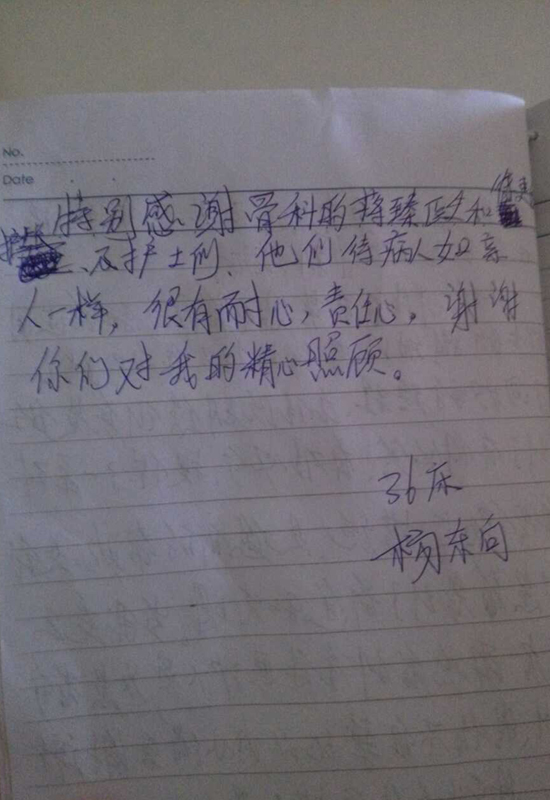 No.
Date
特别感谢骨科的蒋臻欧和
及护士们、他们待病人如亲
人一样，很有耐心，责任心。谢谢
你们对我的精心照顾。
36床
杨东向